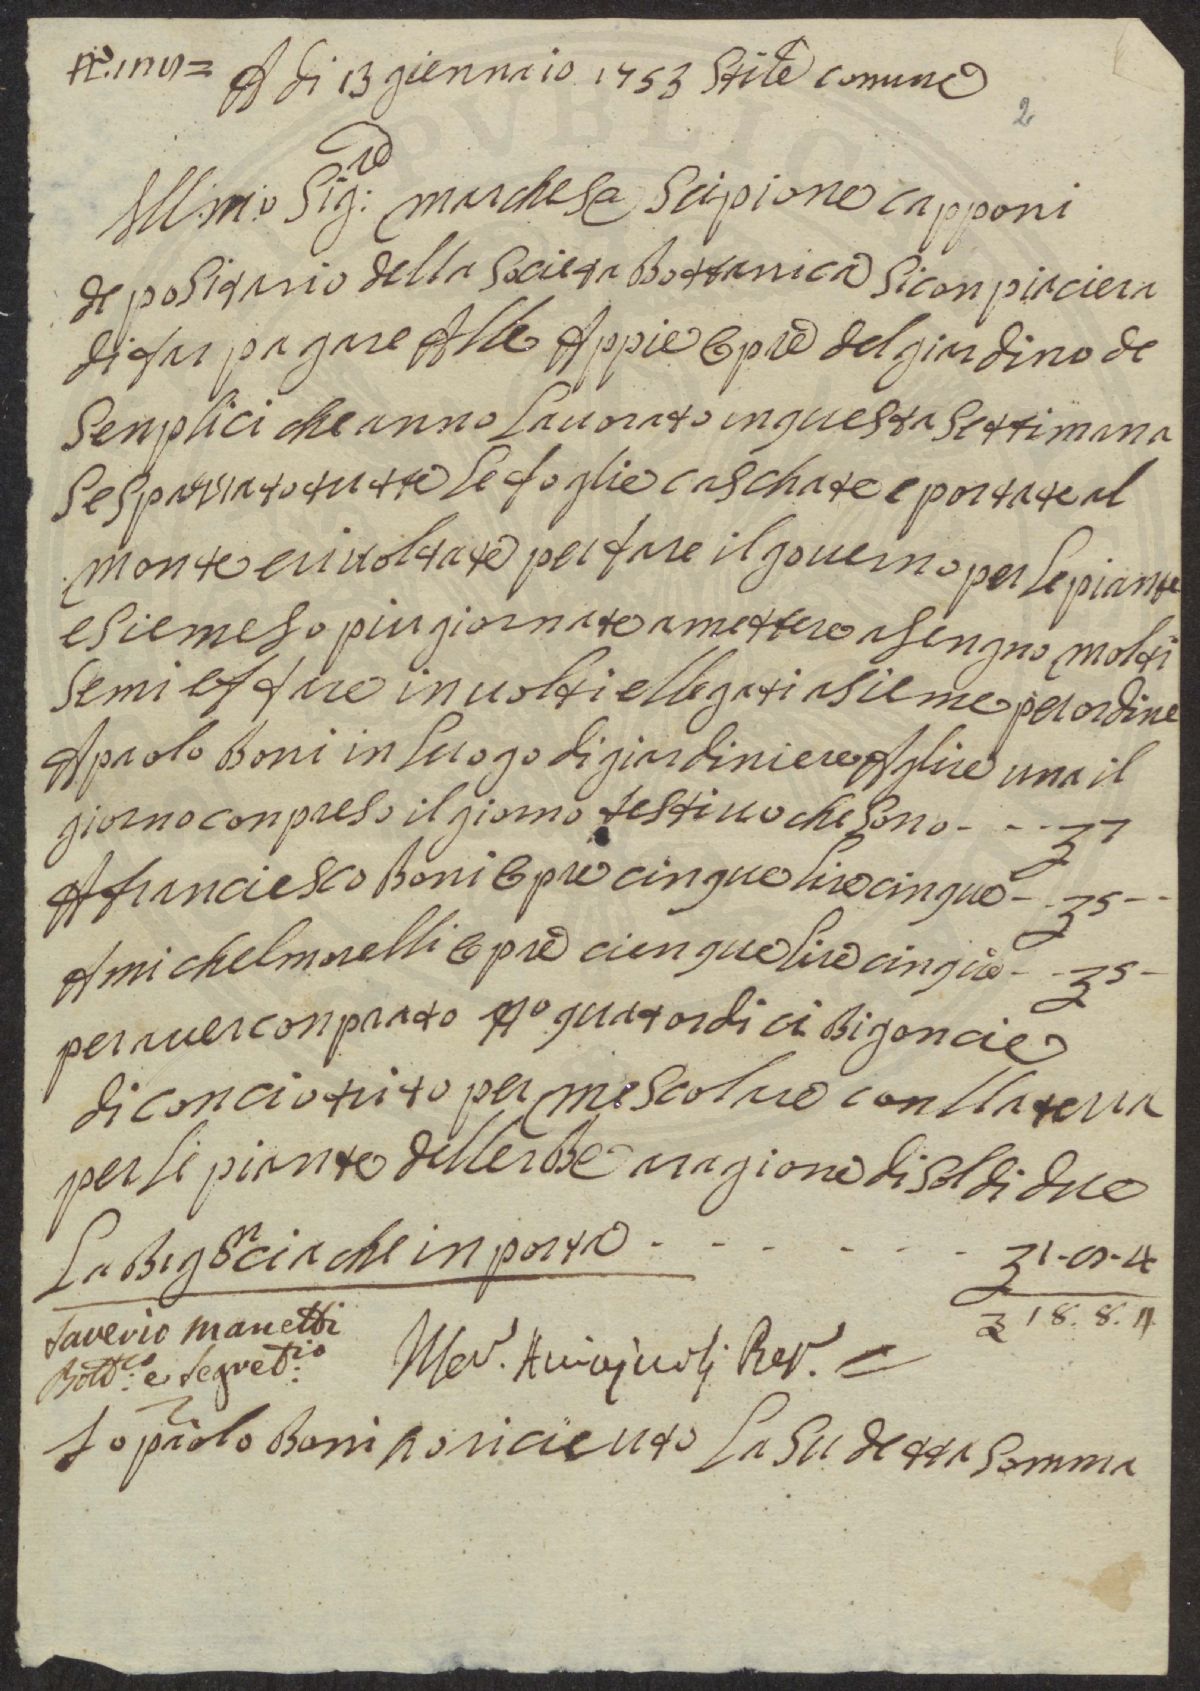 A di 13 giennaio 1753 Stile comune
2
Ill:mo Sig:re marchese Scipione capponi
depositario della Societa Bottanica Si conpiaciera
di far pagare Alle Appie Opre del giardino de
Senplici che anno Lavorato in questa Settimana
Se Spazzato tutte Le foglie caschate e portate al
monte e rivoltate per fare il governo per Le piante
e Sie meso piu giornate a mettere a Sengno molti
Semi e ffare involti e llegati asieme per ordine
A paolo Boni in Luogo di giardiniere A lire una il
giorno conpreso il giorno festivo che Sono - - - 7
A franciesco Boni Opre cinque Lire cinque - - 5 - -
A michel morelli Opre cienque Lire cinque - - 5 -
per aver conprato no quatordici Bigoncie
di concio trito per mescolare con lla terra
per le piante dell erbe a ragione di Soldi due
La Bigoncia che inporta - - - - - - 1 - 8 - 4
18. 8. 4
Saverio Manetti
Bott:co e Segret:io
Rev. =
Io paolo Boni o ricieuto La Su detta Somma